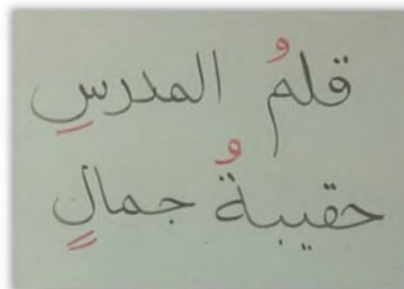 قلمُ المدرسِ
حقيبةُ جمالٍ